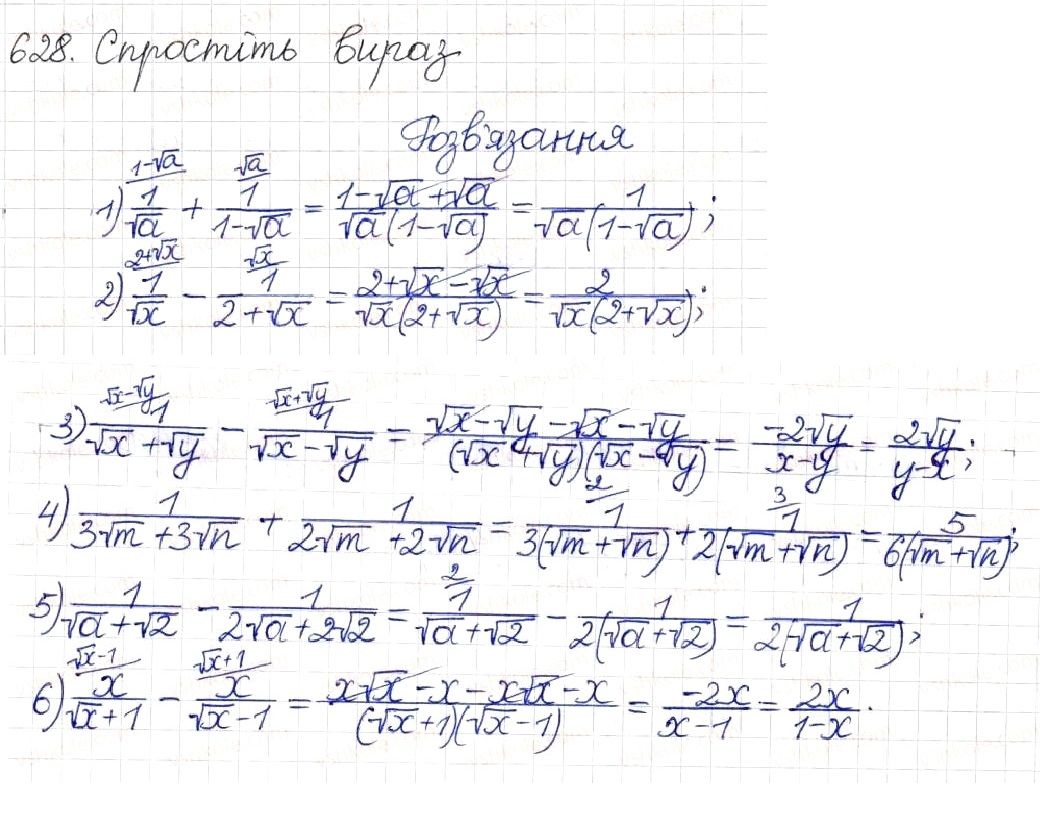 628. Спростіть вираз
Розв'язання
1) 1/√a (1-√a) + 1/(1-√a) (√a) = (1-√a+√a)/(√a(1-√a)) = 1/(√a(1-√a));
2) 1/√x (2+√x) - 1/(2+√x) (√x) = (2+√x-√x)/(√x(2+√x)) = 2/(√x(2+√x));
3) 1/(√x+√y) (√x-√y) - 1/(√x-√y) (√x+√y) = (√x-√y-√x-√y)/((√x+√y)(√x-√y)) = -2√y/(x-y) = 2√y/(y-x);
4) 1/(3√m+3√n) + 1/(2√m+2√n) = 1/(3(√m+√n)) (2) + 1/(2(√m+√n)) (3) = 5/(6(√m+√n));
5) 1/(√a+√2) - 1/(2√a+2√2) = 1/(√a+√2) (2) - 1/(2(√a+√2)) = 1/(2(√a+√2));
6) x/(√x+1) (√x-1) - x/(√x-1) (√x+1) = (x√x-x-x√x-x)/((√x+1)(√x-1)) = -2x/(x-1) = 2x/(1-x).